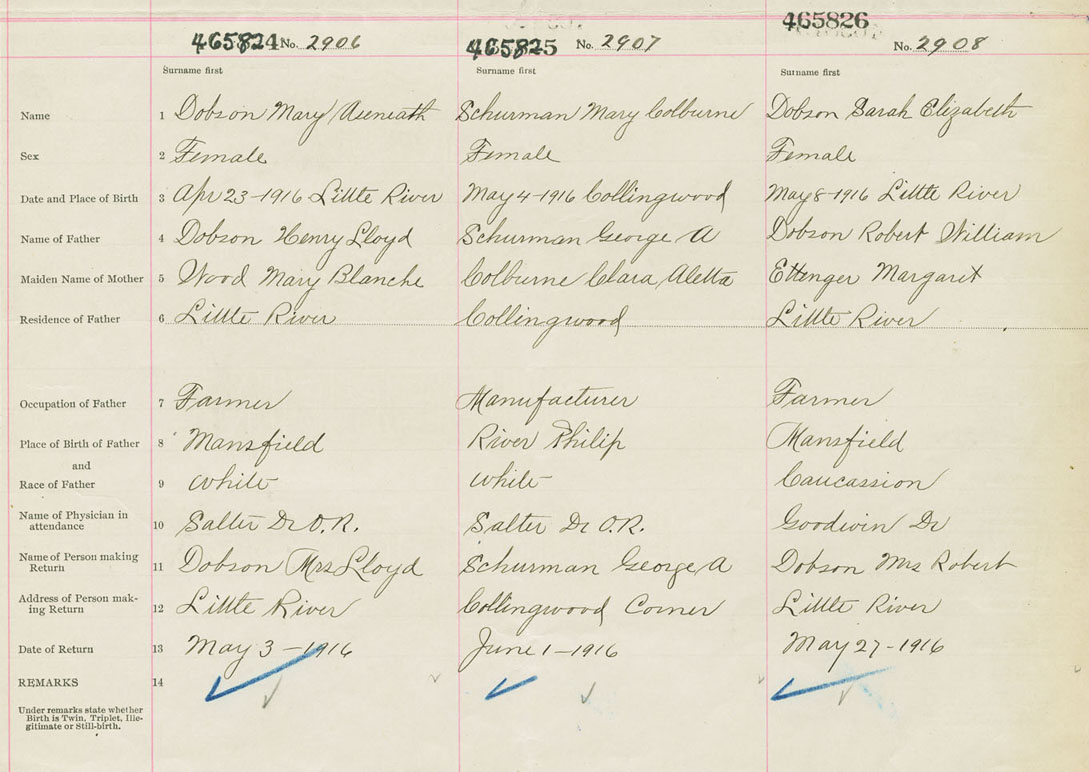 465824 No. 2906 465825 No. 2907 465826 No. 2908
Surname first Surname first Surname first
Name 1 Dobson Mary Aseneath Schurman Mary Colburne Dobson Sarah Elizabeth
Sex 2 Female Female Female
Date and Place of Birth 3 Apr 23-1916 Little River May 4-1916 Collingwood May 8-1916 Little River
Name of Father 4 Dobson Henry Lloyd Schurman George A Dobson Robert William
Maiden Name of Mother 5 Wood Mary Blanche Colburne Clara Aletta Ettenger Margaret
Residence of Father 6 Little River Collingwood Little River
Occupation of Father 7 Farmer Manufacturer Farmer
Place of Birth of Father 8 Mansfield River Philip Mansfield
and
Race of Father 9 White White Caucassion
Name of Physician in
attendance 10 Salter Dr O.R. Salter Dr O.R. Goodwin Dr
Name of Person making
Return 11 Dobson Mrs Lloyd Schurman George A Dobson Mrs Robert
Address of Person mak-
ing Return 12 Little River Collingwood Corner Little River
Date of Return 13 May 3-1916 June 1-1916 May 27-1916
REMARKS 14
Under remarks state whether
Birth is Twin, Triplet, Ille-
gitimate or Still-birth.